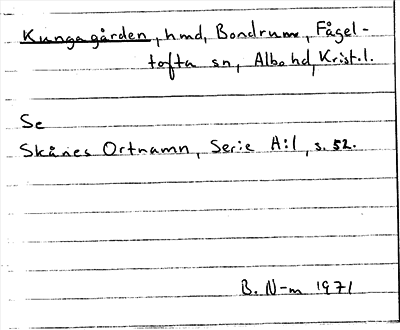 Kungagården, hmd, Bondrum, Fågel-
tofta sn, Albo hd, Krist. l.
Se
Skånes Ortnamn, Serie A:1, s. 52.
B. N-m 1971